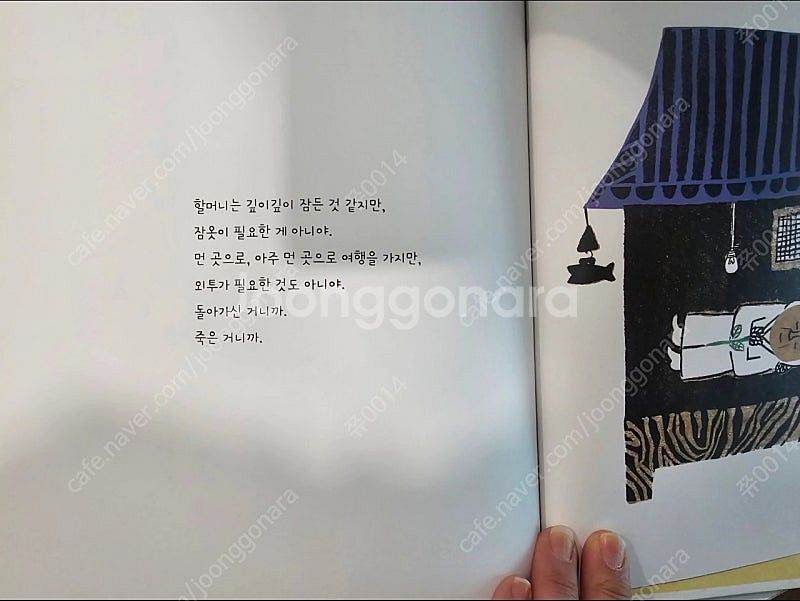 할머니는 깊이깊이 잠든 것 같지만,
잠옷이 필요한 게 아니야.
먼 곳으로, 아주 먼 곳으로 여행을 가지만,
외투가 필요한 것도 아니야.
돌아가신 거니까.
죽은 거니까.
joonggonara
cafe.naver.com/joonggonara
쮸0014